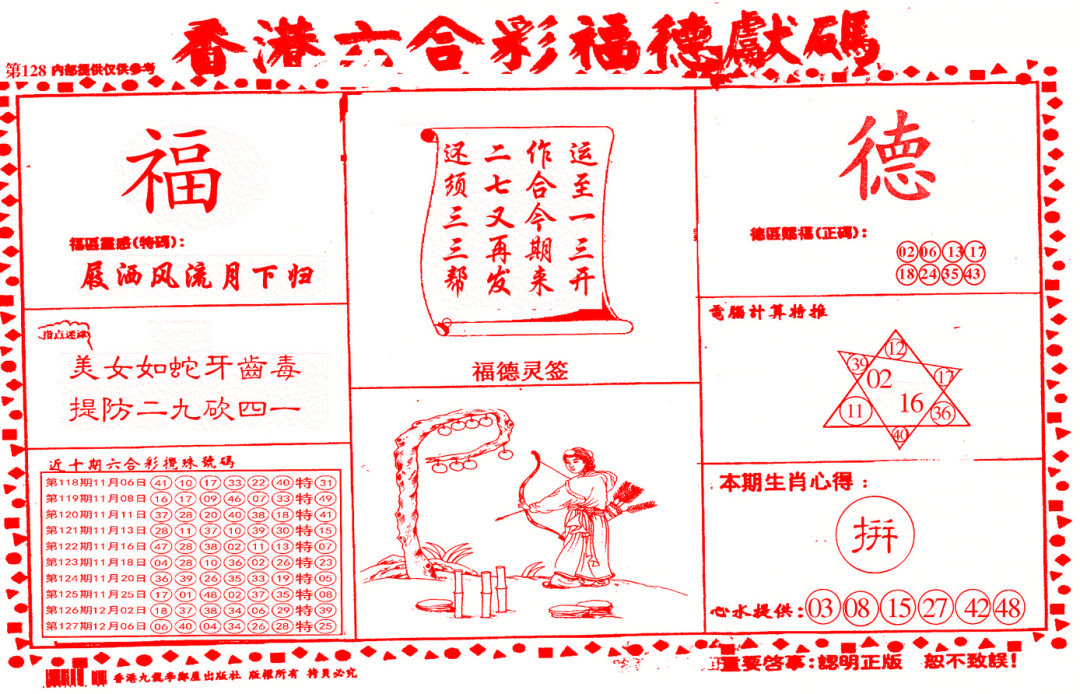 香港六合彩福德獻碼
第128 内部提供仅供参考
福
福區靈感(特碼):
屐洒风流月下归
指点迷津
美女如蛇牙齒毒
提防二九砍四一
近十期六合彩攪珠號碼
第118期11月06日 41 10 17 33 22 40 特 31
第119期11月08日 16 17 09 46 07 33 特 49
第120期11月11日 37 28 20 40 38 18 特 41
第121期11月13日 28 11 37 10 39 30 特 15
第122期11月16日 47 28 38 02 11 13 特 07
第123期11月18日 04 28 10 36 02 26 特 23
第124期11月20日 36 39 26 35 33 19 特 05
第125期11月25日 17 01 48 02 37 35 特 08
第126期12月02日 18 37 38 34 06 29 特 39
第127期12月06日 06 40 04 34 26 28 特 25
运至一三开
作合今期来
二七又再发
还须三三帮
福德灵签
德
德區賜福(正碼):
02 06 13 17
18 24 35 43
電腦計算特推
12
39
02
17
16
11
36
40
本期生肖心得:
拼
心水提供: 03 08 15 27 42 48
重要啓事:認明正版 恕不致誤!
香港九龍李鄭屋出版社 版權所有 拷貝必究